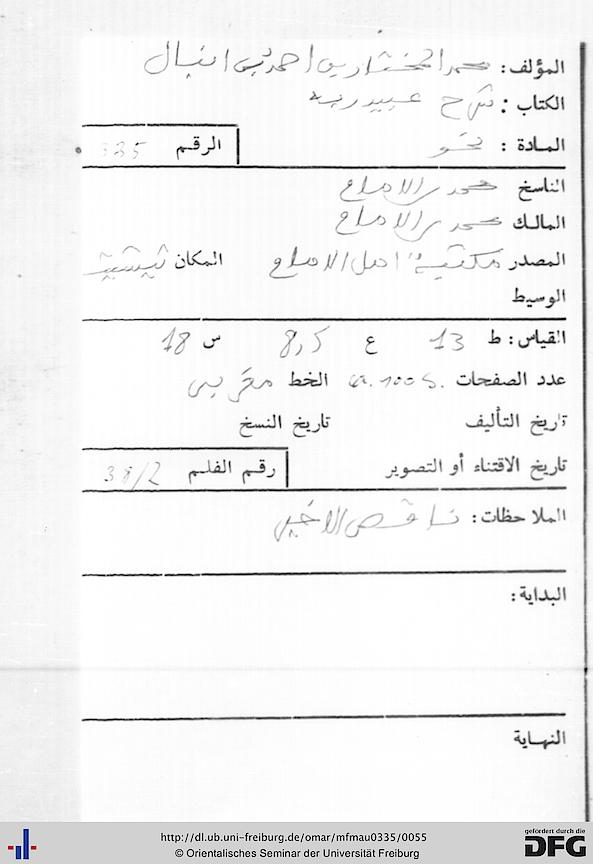 المؤلف: محمد المختار بن احمد بن انبال
الكتاب: شرح عبيد ربه
المادة: نحو
الرقم 335
الناسخ محمد بن الامام
المالك محمد بن الامام
المصدر مكتبة اهل الامام المكان تيشيت
الوسيط
القياس: ط 13 ع 8,5 س 18
عدد الصفحات 100 S. الخط مغربي
تاريخ التأليف تاريخ النسخ
تاريخ الاقتناء أو التصوير رقم الفلم 38/2
الملاحظات: ناقص الاخير
البداية:
النهاية
http://dl.ub.uni-freiburg.de/omar/mfmau0335/0055
© Orientalisches Seminar der Universität Freiburg
gefördert durch die
DFG